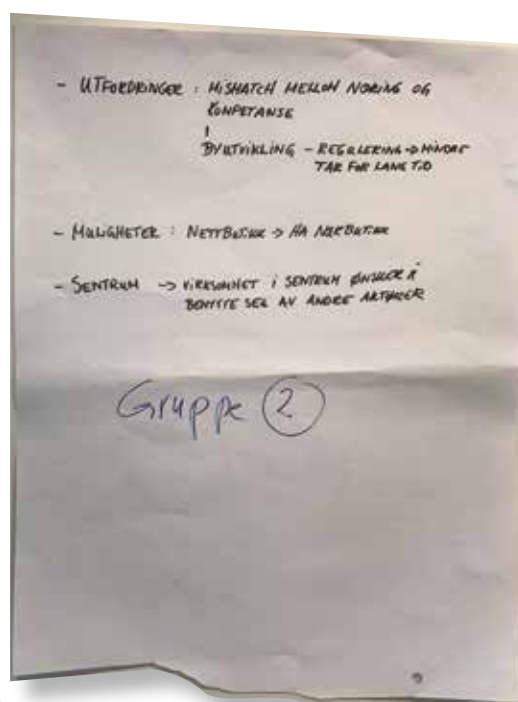 - UTFORDRINGER : MISHATCH MELLOM NÆRING OG
KOMPETANSE
BYUTVIKLING - REGULERING -> MINDRE
TAR FOR LANG TID
- MULIGHETER : NETTBUTIKK -> HA NÆRBUTIKK
- SENTRUM -> VIRKSOMHET I SENTRUM ØNSKER Å
BENYTTE SEG AV ANDRE AKTØRER
Gruppe 2